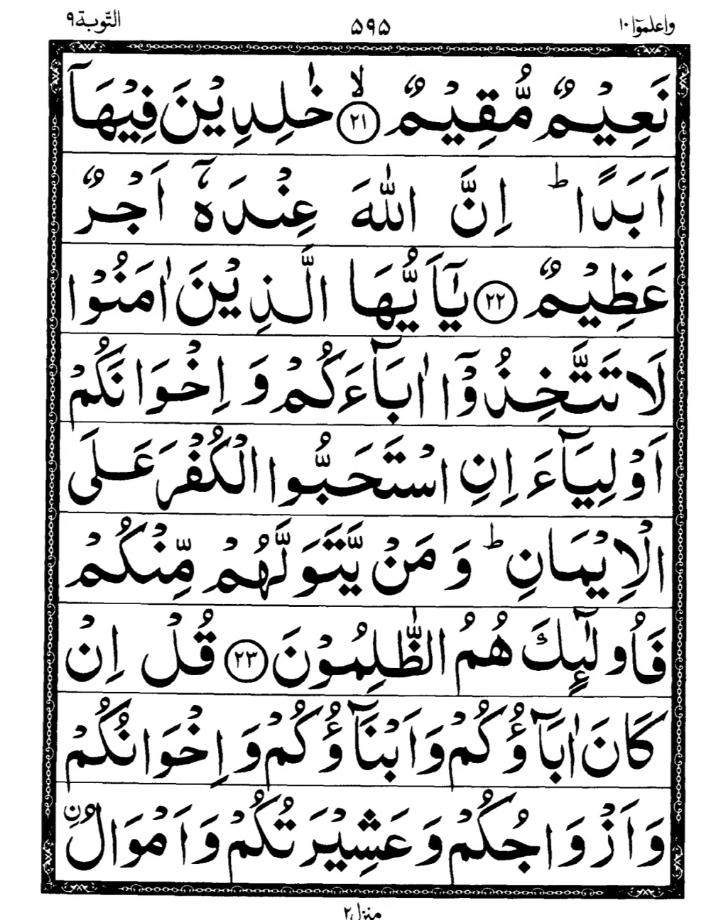 التّوبة ٩ ۵۹۵ واعلموٓا ١٠
نَعِيْمٌ مُّقِيْمٌ ﴿٢١﴾ۙ خٰلِدِيْنَ فِيْهَآ
اَبَدًا ؕ اِنَّ اللّٰهَ عِنْدَهٗٓ اَجْرٌ
عَظِيْمٌ ﴿٢٢﴾ يٰٓاَيُّهَا الَّذِيْنَ اٰمَنُوْا
لَا تَتَّخِذُوْٓا اٰبَآءَكُمْ وَ اِخْوَانَكُمْ
اَوْلِيَآءَ اِنِ اسْتَحَبُّوا الْكُفْرَ عَلَى
الْاِيْمَانِ ؕ وَ مَنْ يَّتَوَلَّهُمْ مِّنْكُمْ
فَاُولٰٓئِكَ هُمُ الظّٰلِمُوْنَ ﴿٢٣﴾ قُلْ اِنْ
كَانَ اٰبَآؤُكُمْ وَاَبْنَآؤُكُمْ وَ اِخْوَانُكُمْ
وَاَزْوَاجُكُمْ وَ عَشِيْرَتُكُمْ وَ اَمْوَالُ ۨ
منزل ٢